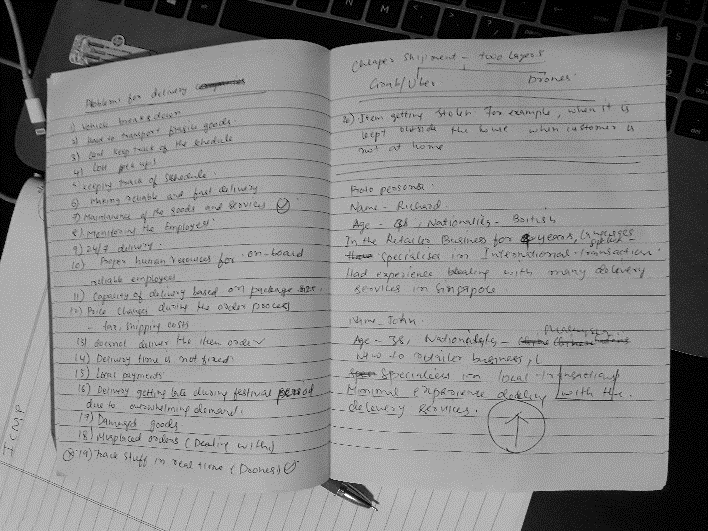 Problems for delivery
1) Vehicle breaks down
2) Hard to transport fragile goods.
3) Cant keep track of the schedule
4) Late pick ups
5) keeping track of schedule.
6) Making reliable and fast delivery
7) Maintenance of the goods and services
8) Monitoring the employees.
9) 24/7 delivery.
10) Proper human resources for on-board
reliable employees
11) Capacity of delivery based on package size.
12) Price changes during the order process
- tax, shipping costs
13) doesnot deliver the item order
14) Delivery time is not fixed
15) Local payments
16) Delivery getting late during festival period
due to overwhelming demand.
17) Damaged goods
18) Misplaced orders (Dealing with)
19) Track stuff in real time (Drones)
Cheaper shipment - two layers
Grab/Uber Drones
20) Item getting stolen For example, when it is
kept outside the house when customer is
not at home
Proto persona
Name - Richard
Age - 38, Nationality - British
In the Retailer Business for 4 years,
Specialises in International transaction
Had experience dealing with many delivery
services in Singapore
Name - John
Age - 38, Nationality -
New to retailer business,
Specialises in local transactions
Minimal experience dealing with the
delivery services.